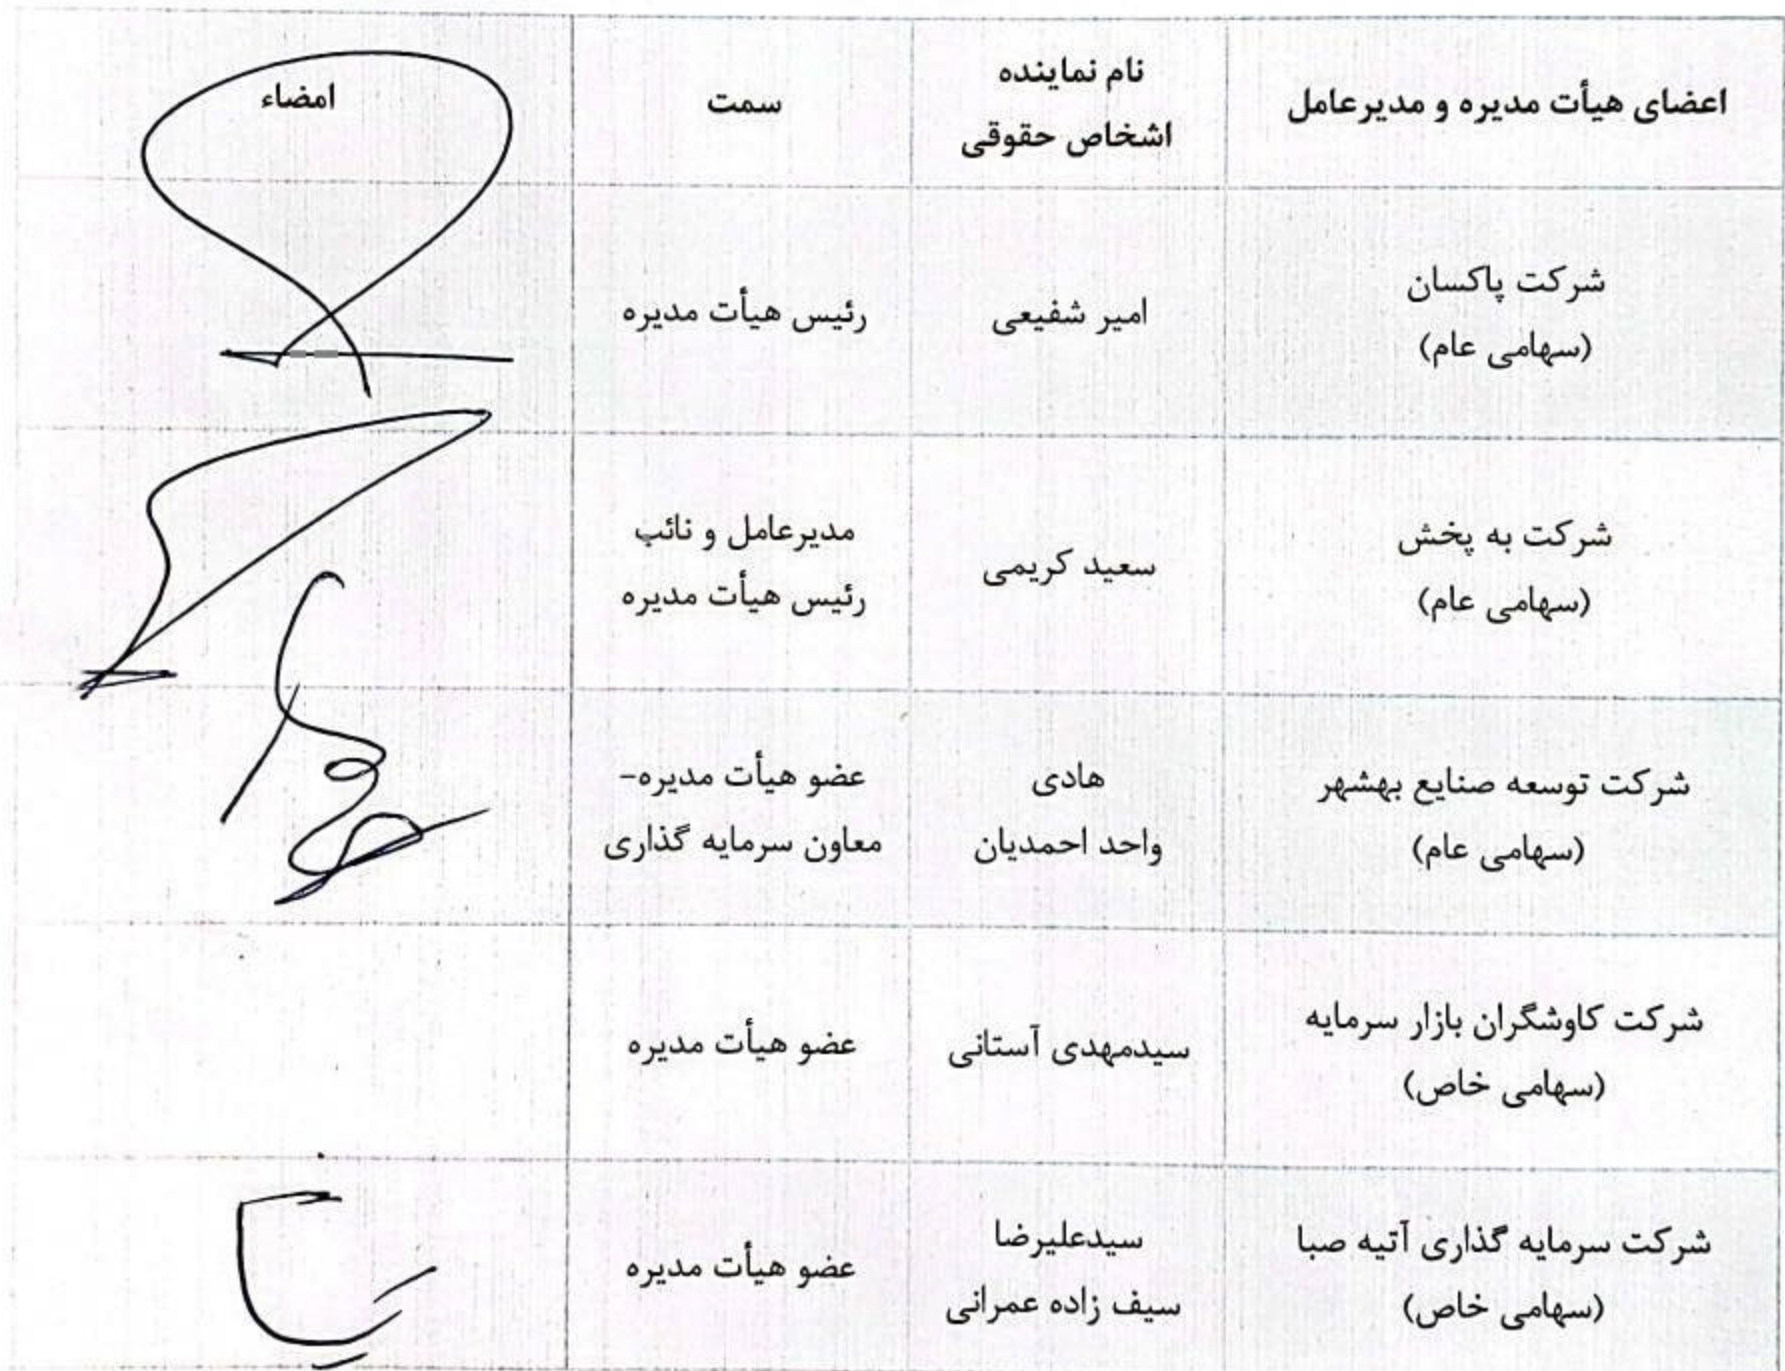 اعضای هیأت مدیره و مدیرعامل
نام نماینده
اشخاص حقوقی
سمت
امضاء
شرکت پاکسان
(سهامی عام)
امیر شفیعی
رئیس هیأت مدیره
شرکت به پخش
(سهامی عام)
سعید کریمی
مدیرعامل و نائب
رئیس هیأت مدیره
شرکت توسعه صنایع بهشهر
(سهامی عام)
هادی
واحد احمدیان
عضو هیأت مدیره-
معاون سرمایه گذاری
شرکت کاوشگران بازار سرمایه
(سهامی خاص)
سیدمهدی آستانی
عضو هیأت مدیره
شرکت سرمایه گذاری آتیه صبا
(سهامی خاص)
سیدعلیرضا
سیف زاده عمرانی
عضو هیأت مدیره